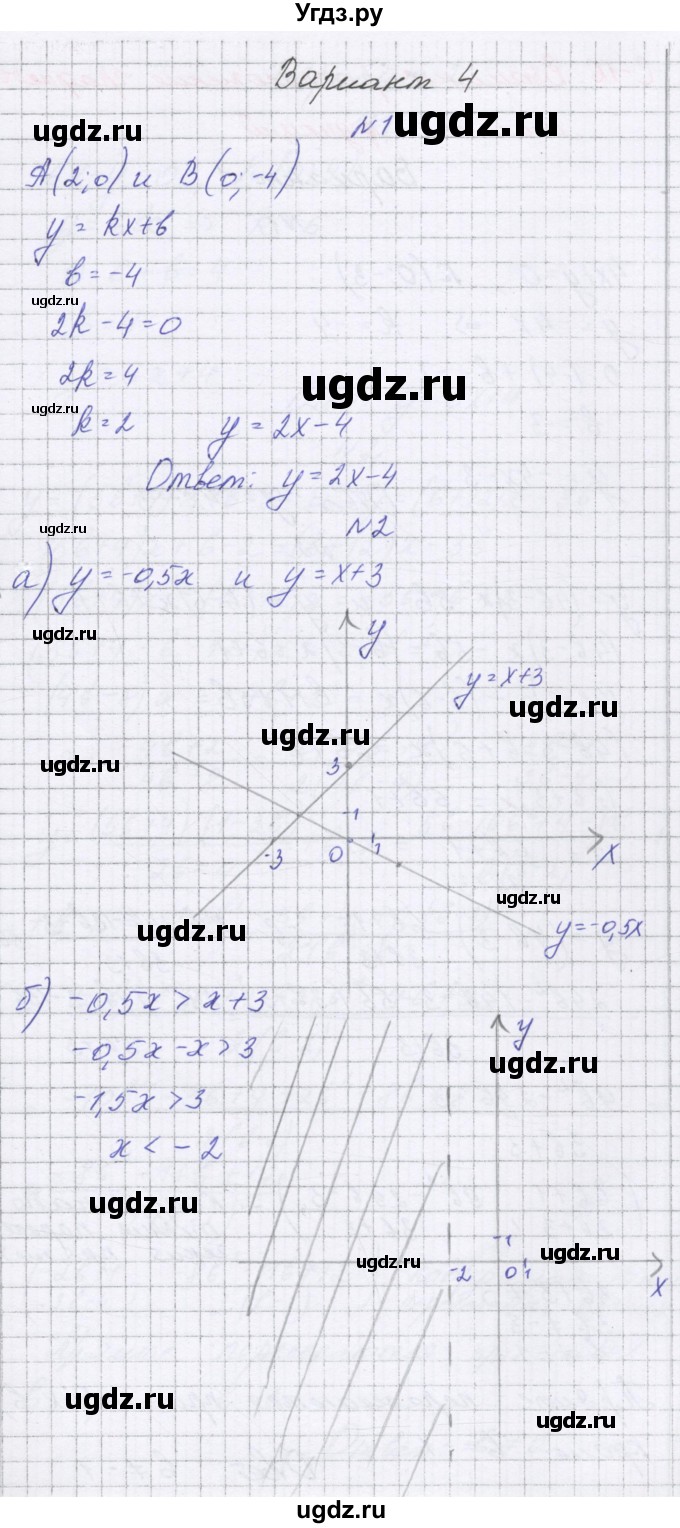 Угдз.ру
Вариант 4
ugdz.ru
N1 ugdz.ru
A(2;0) и B(0;-4)
y = kx+b
b = -4
ugdz.ru
2k - 4 = 0
2k = 4
ugdz.ru
ugdz.ru
k = 2 y = 2x-4
Ответ: y = 2x-4
ugdz.ru
N2
а) y = -0,5x и y = x+3
ugdz.ru
y
y = x+3
ugdz.ru
ugdz.ru
ugdz.ru
3
1
-3 0 1 x
ugdz.ru
ugdz.ru
y = -0,5x
б) -0,5x > x+3
y
-0,5x - x > 3
ugdz.ru
-1,5x > 3
x < -2
ugdz.ru
1
ugdz.ru
ugdz.ru
-2 0 1
x
ugdz.ru
ugdz.ru
ugdz.ru